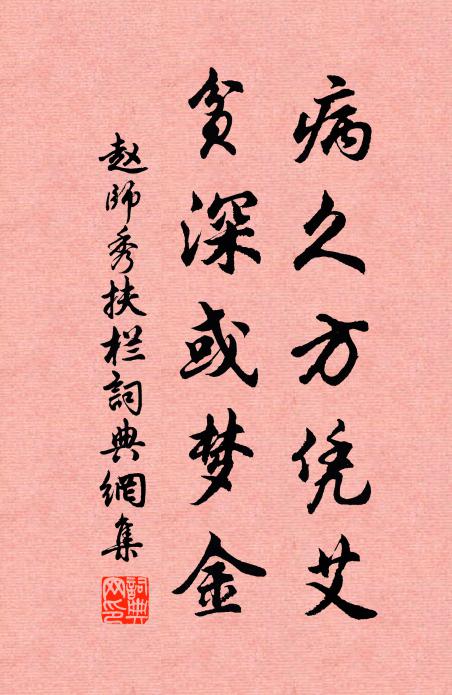 病久方凭艾
贫深或梦金
赵师秀扶栏詞典網集
詞典网印